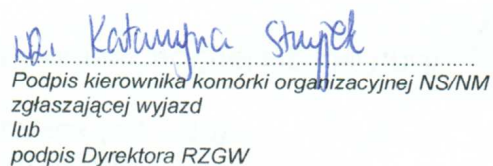 wz. Katarzyna Stryjek
Podpis kierownika komórki organizacyjnej NS/NM
zgłaszającej wyjazd
lub
podpis Dyrektora RZGW